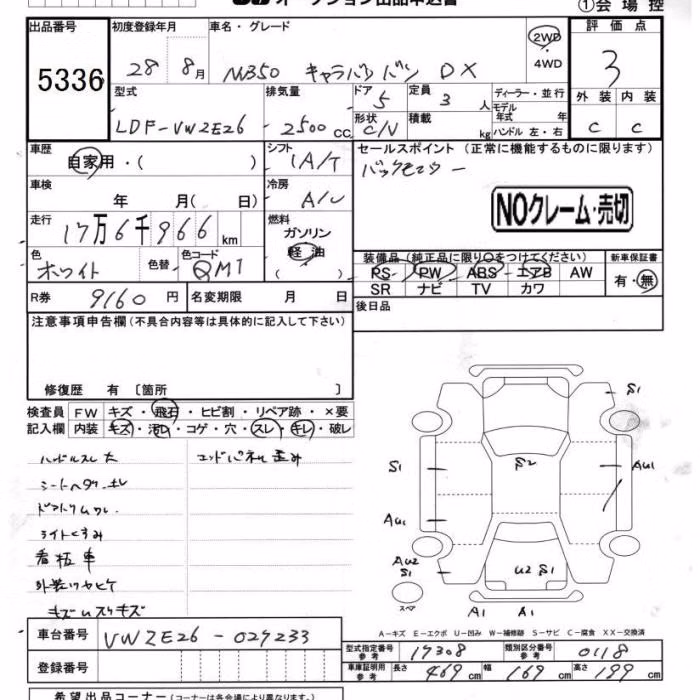 オークション出品申込書
①会場控
出品番号 5336
初度登録年月 28年 8月
車名・グレード NV350 キャラバンバン DX
2WD・4WD
評価点 3
外装 C 内装 C
型式 LDF-VW2E26
排気量 2500 cc
ドア 5
形状 C/V
定員 3 人
積載 kg
ディーラー・並行
モデル年式 年
ハンドル 左・右
車歴 自家用・( )
シフト IA/T
セールスポイント (正常に機能するものに限ります)
バックモニター
NOクレーム・売切
車検 年 月( 日)
冷房 A/C
走行 17万6千966km
燃料 ガソリン 軽油 ( )
色 ホワイト 色替 色コード QM1
装備品(純正品に限り○をつけてください)
PS PW ABS エアB AW
SR ナビ TV カワ
新車保証書 有・無
R券 9160 円 名変期限 月 日
後日品
注意事項申告欄(不具合内容等は具体的に記入して下さい)
修復歴 有 〔箇所 〕
検査員記入欄
FW キズ・飛石・ヒビ割・リペア跡・×要
内装 キズ・汚れ・コゲ・穴・スレ・キレ・破レ
ハンドルスレ大 エンドパネル歪み
ライトくすみ
看板車
S1
S1 S2 AU1
AU1
AU2
S1 U2 S1
スペア
A1 A1
A-キズ E-エクボ U-凹み W-補修跡 S-サビ C-腐食 XX-交換済
車台番号 VW2E26-029233
登録番号
型式指定番号 参考 17308 類別区分番号 参考 0118
車庫証明用 参考 長さ 469 cm 幅 169 cm 高さ 199 cm
希望出品コーナー(コーナーは各会場により異なります。)